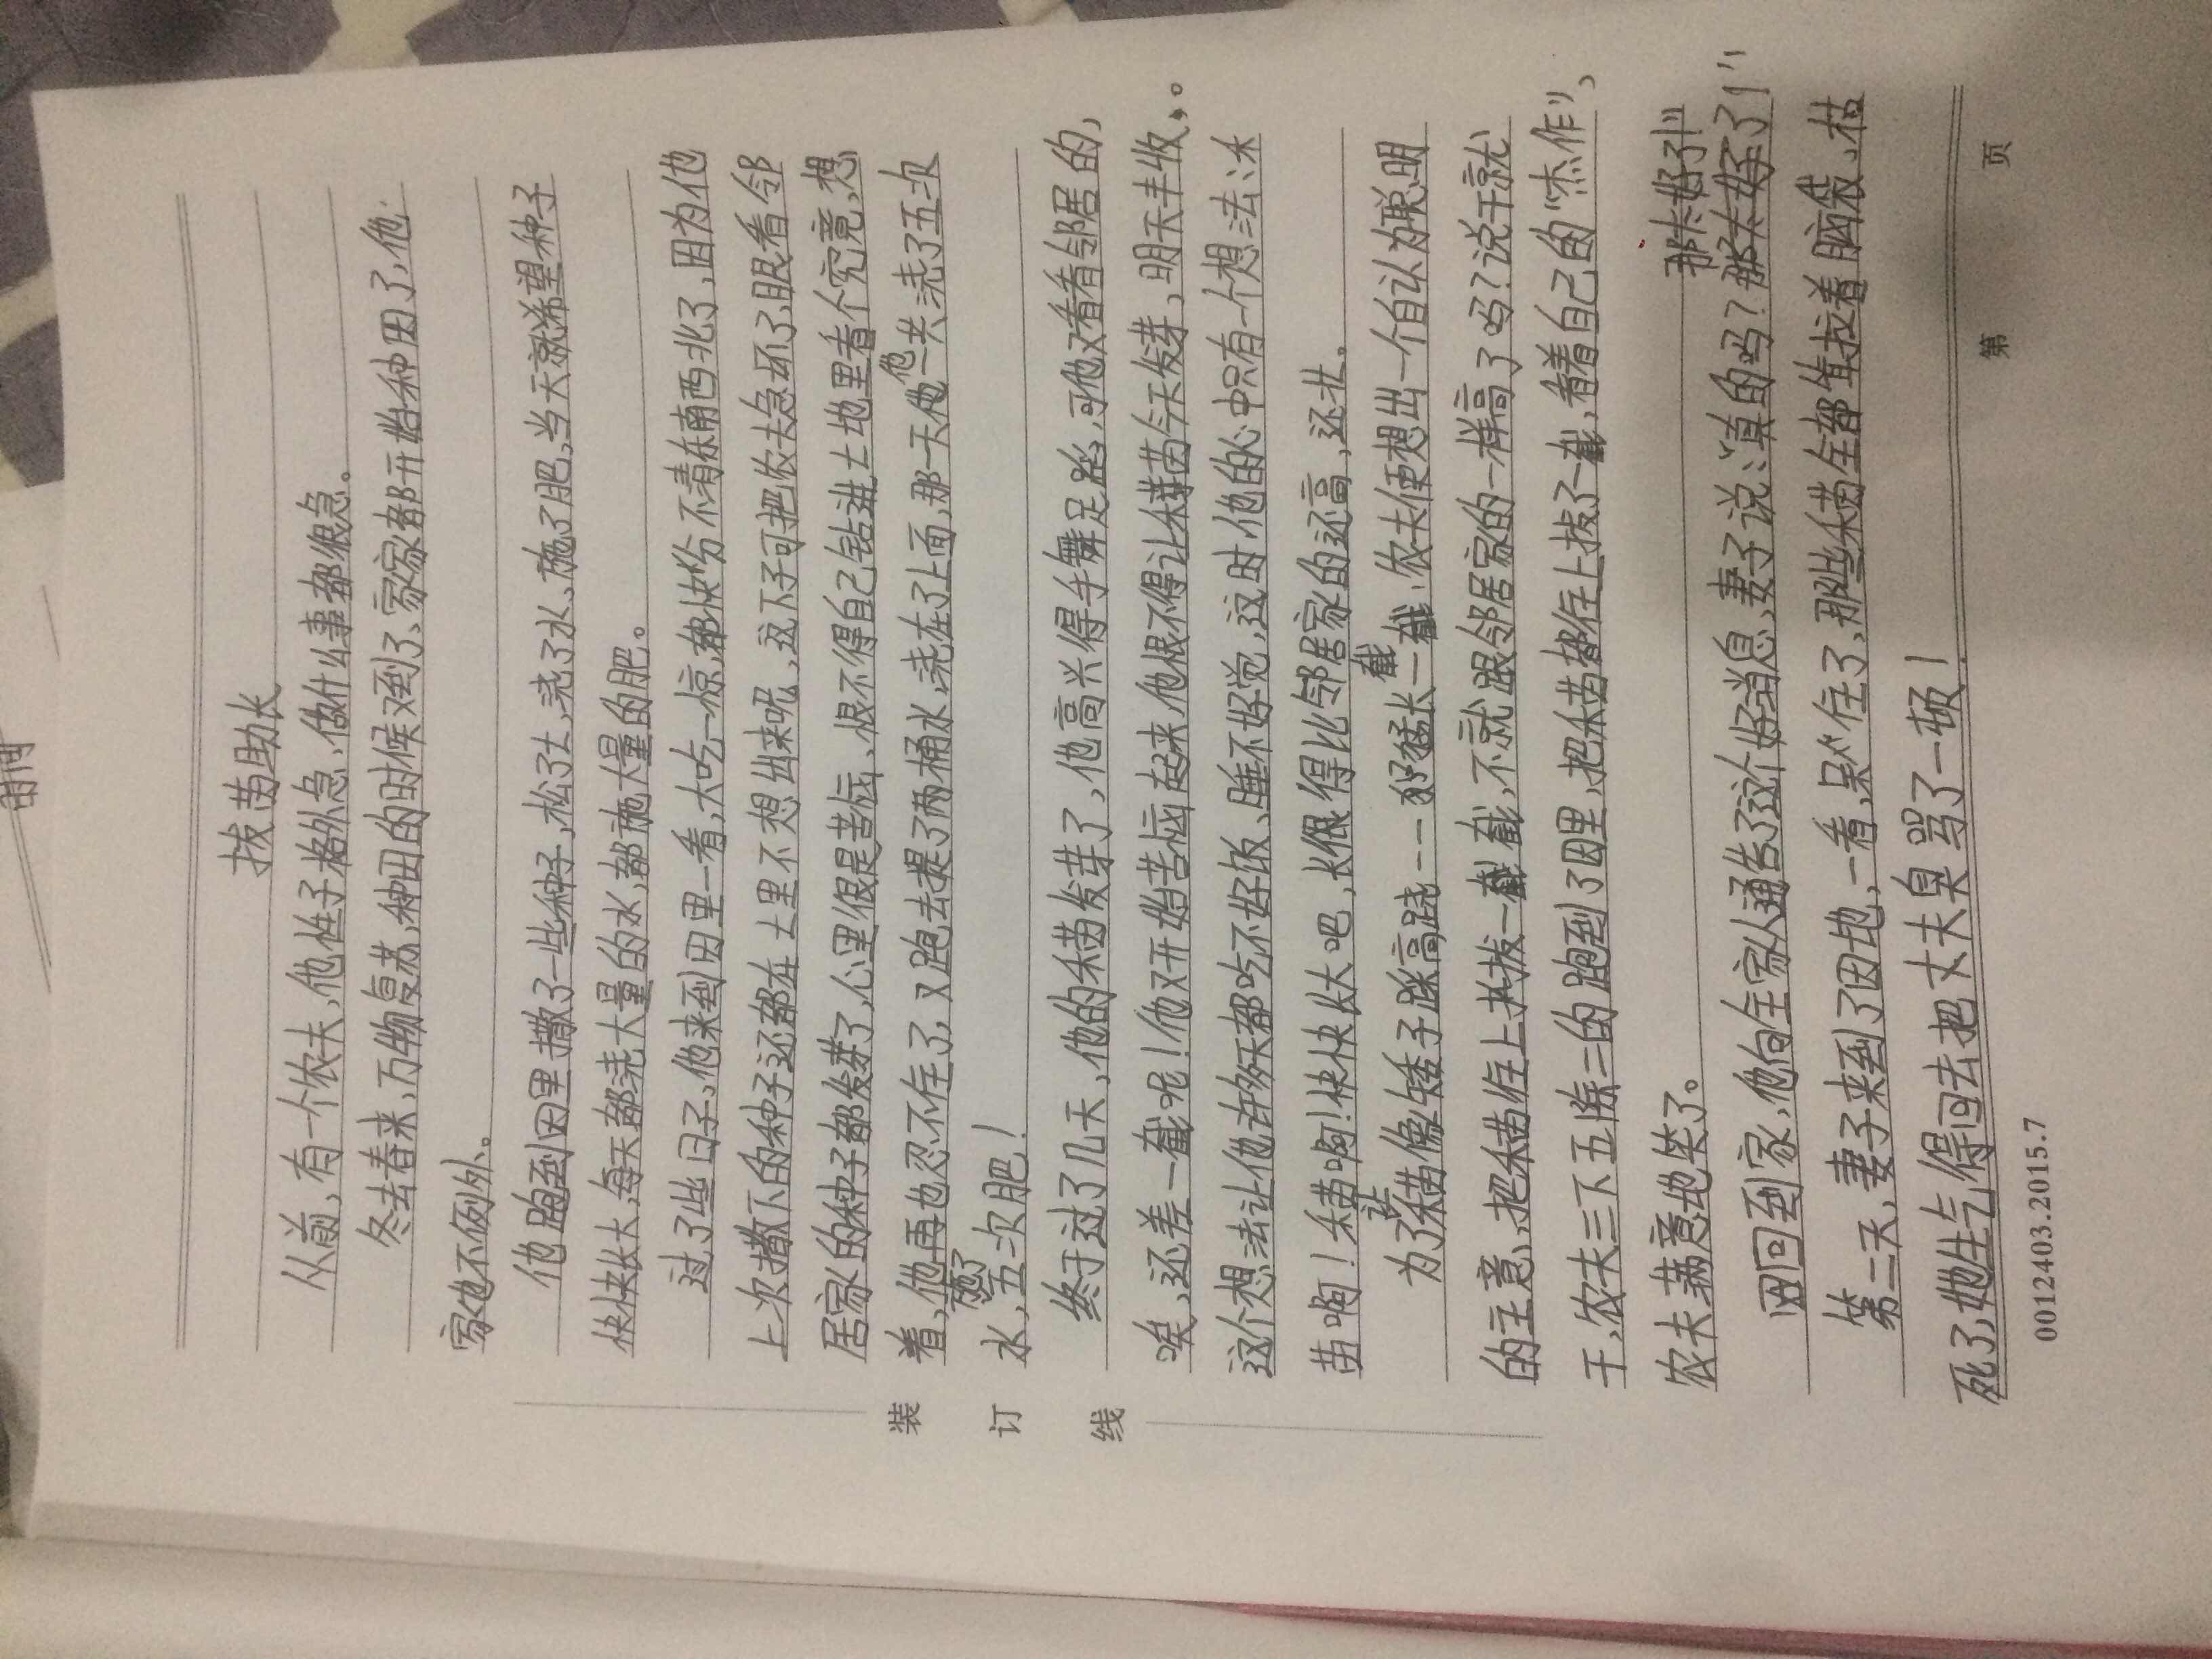 拔苗助长
从前,有一个农夫,他性子格外急,做什么事都很急。
冬去春来,万物复苏,种田的时候又到了,家家都开始种田了,他
家也不例外。
他跑到田里撒了一些种子,松了土,浇了水,施了肥,当天就希望种子
快快长大,每天都浇大量的水,都施大量的肥。
过了些日子,他来到田里一看,大吃一惊,都快分不清东南西北了,因为他
上次撒下的种子还都在土里不想出来呢,这下子可把农夫急坏了,眼看邻
居家的种子都发芽了,心里很是苦恼、恨不得自己钻进土地里看个究竟,想
着,他再也忍不住了,又跑去提了两桶水,浇在了上面,那一天他一共浇了五次
水,施了五次肥!
终于过了几天,他的禾苗发芽了,他高兴得手舞足蹈,可他又看看邻居的,
唉,还差一截呢!他又开始苦恼起来,他恨不得让禾苗今天发芽,明天丰收。
这个想法让他每天都吃不好饭、睡不好觉,这时他的心中只有一个想法:禾
苗啊!禾苗啊!快快长大吧,长得比邻居家的还高,还壮。
为了让禾苗像矮子踩高跷一一猛长一截,农夫便想出一个自认为聪明
的主意,把禾苗往上拔一截,不就跟邻居家的一样高了吗?说干就
干,农夫三下五除二的跑到了田里,把禾苗都往上拔了一截,看着自己的“杰作”,
农夫满意地笑了。
回到家,他向全家人通告了这个好消息,妻子说:“真的吗?那太好了!”
第二天,妻子来到了田地,一看,呆住了,那些禾苗全都耷拉着脑袋,枯
死了,她生气得回去把丈夫臭骂了一顿!
装 订 线
0012403.2015.7
第 页